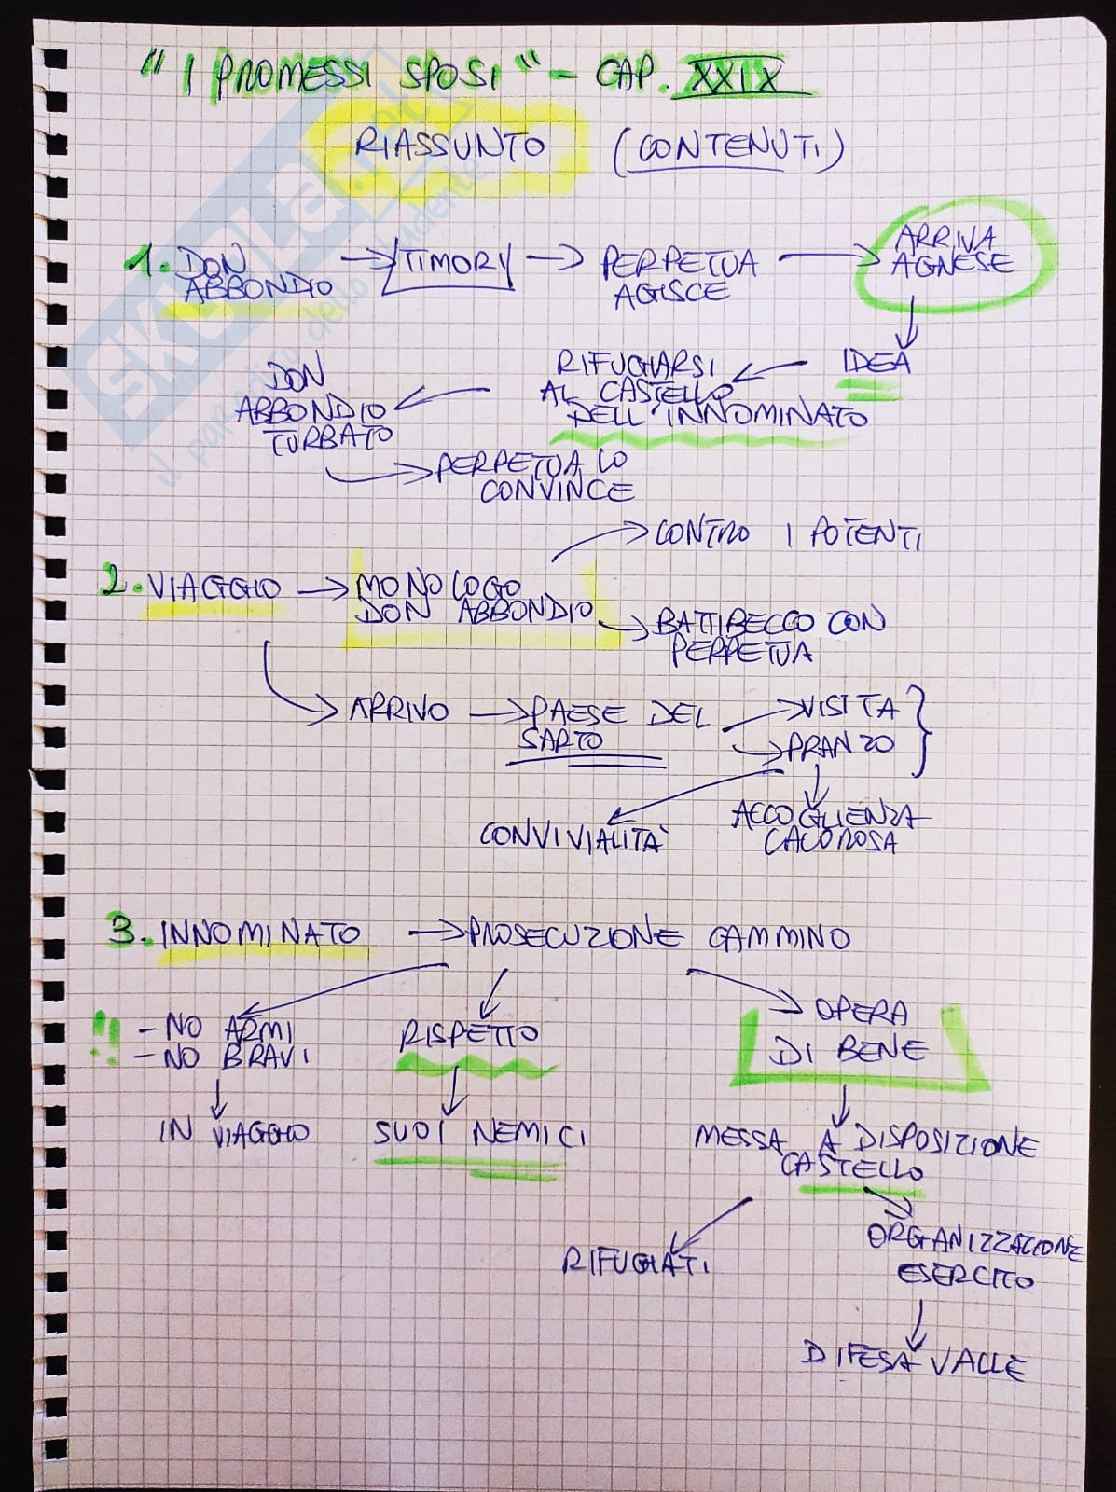 "I PROMESSI SPOSI" - CAP. XXIX
RIASSUNTO (CONTENUTI)
1. DON
ABBONDIO
TIMORI
PERPETUA
AGISCE
ARRIVA
AGNESE
IDEA
RIFUGIARSI
AL CASTELLO
DELL'INNOMINATO
DON
ABBONDIO
TURBATO
PERPETUA LO
CONVINCE
2. VIAGGIO
MONOLOGO
DON ABBONDIO
CONTRO I POTENTI
BATTIBECCO CON
PERPETUA
ARRIVO
PAESE DEL
SARTO
VISITA
PRANZO
CONVIVIALITÀ
ACCOGLIENZA
CALOROSA
3. INNOMINATO
PROSECUZIONE CAMMINO
!! - NO ARMI
- NO BRAVI
IN VIAGGIO
RISPETTO
SUOI NEMICI
OPERA
DI BENE
MESSA A DISPOSIZIONE
CASTELLO
RIFUGIATI
ORGANIZZAZIONE
ESERCITO
DIFESA VALLE